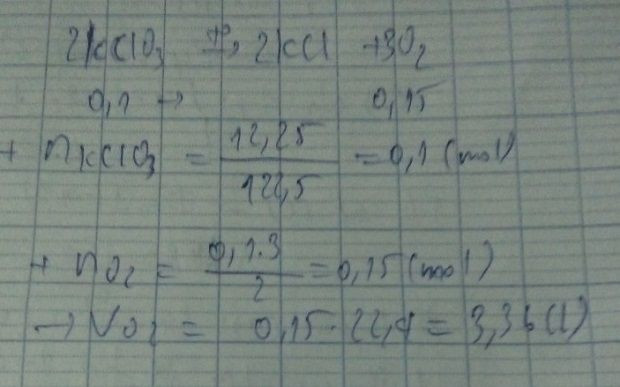 2KClO₃ t°→ 2KCl + 3O₂
0,1 → 0,15
+ nKClO₃ = 12,25 / 122,5 = 0,1 (mol)
+ nO₂ = 0,1.3 / 2 = 0,15 (mol)
→ VO₂ = 0,15 . 22,4 = 3,36 (l)